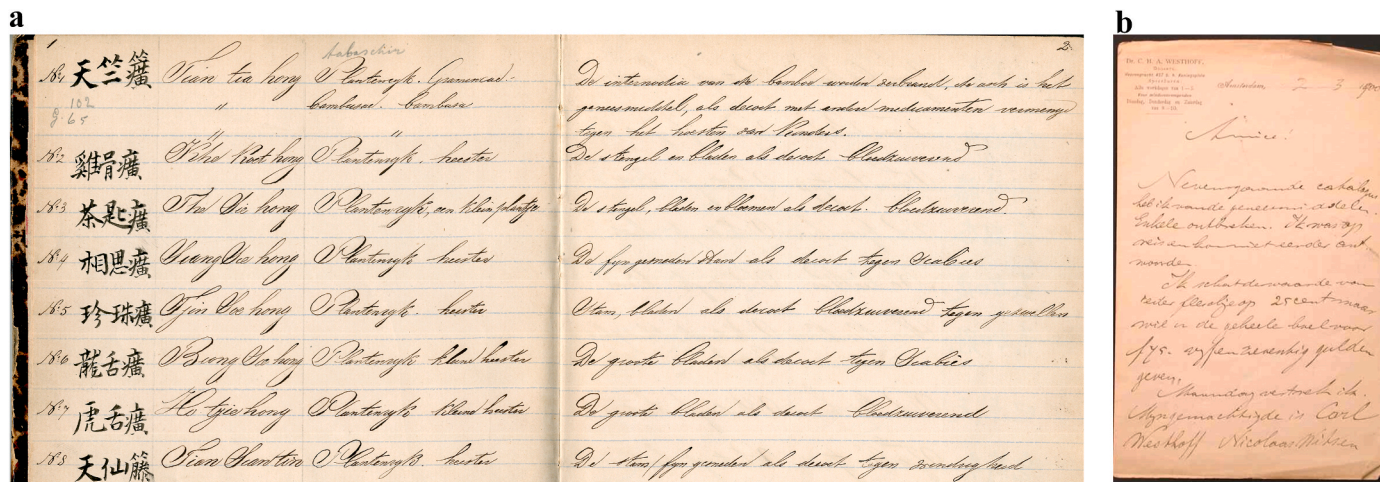 a
b
1
2.
tabaschir
No 1 天竺簧 Tian tia hong Plantenryk. Gramineae: De internodia van de bamboe worden verbrand, de asch is het
102 " bambusae. Bambusa geneesmiddel, als decoct met andere medicamenten vermengd
g. 65
" " tegen het hoesten van kinders.
No 2 雞骨癀 Kehe Koet hong Plantenryk. heester De stengel en bladen als decoct bloedzuiverend
No 3 茶匙癀 The Sie hong Plantenryk, een klein plantje De stengel, bladen en bloemen als decoct. bloedzuiverend.
No 4 相思癀 Siang Sie hong Plantenryk heester De fyn gesneden stam als decoct tegen Scabies
No 5 珍珠癀 Tjin Soe hong Plantenryk. heester Stam, bladen als decoct bloedzuiverend tegen gezwellen
No 6 龍舌癀 Plantenryk kleine heester De groote bladen als decoct tegen Scabies
No 7 虎舌癀 Ho tzie hong Plantenryk kleine heester De groote bladen als decoct bloedzuiverend
No 8 天仙籐 Tian Sian tin Plantenryk. heester De stam, fyn gesneden als decoct tegen winderigheid
Dr. C. H. A. WESTHOFF,
Amsterdam, 2 3
Amice!
Nevensgaande catalogus
heb ik van de geneesmiddelen.
Enkele ontbreken. Ik was op
reis en kon niet eerder ant
woorden.
Ik schat de waarde van
ieder fleschje op 25 cent maar
wil u de geheele boel voor
f 75.- vyf en zeventig gulden
geven.
Maandag vertrek ik.
Myn gemachtigde is Carl
Westhoff Nicolaas Witsen